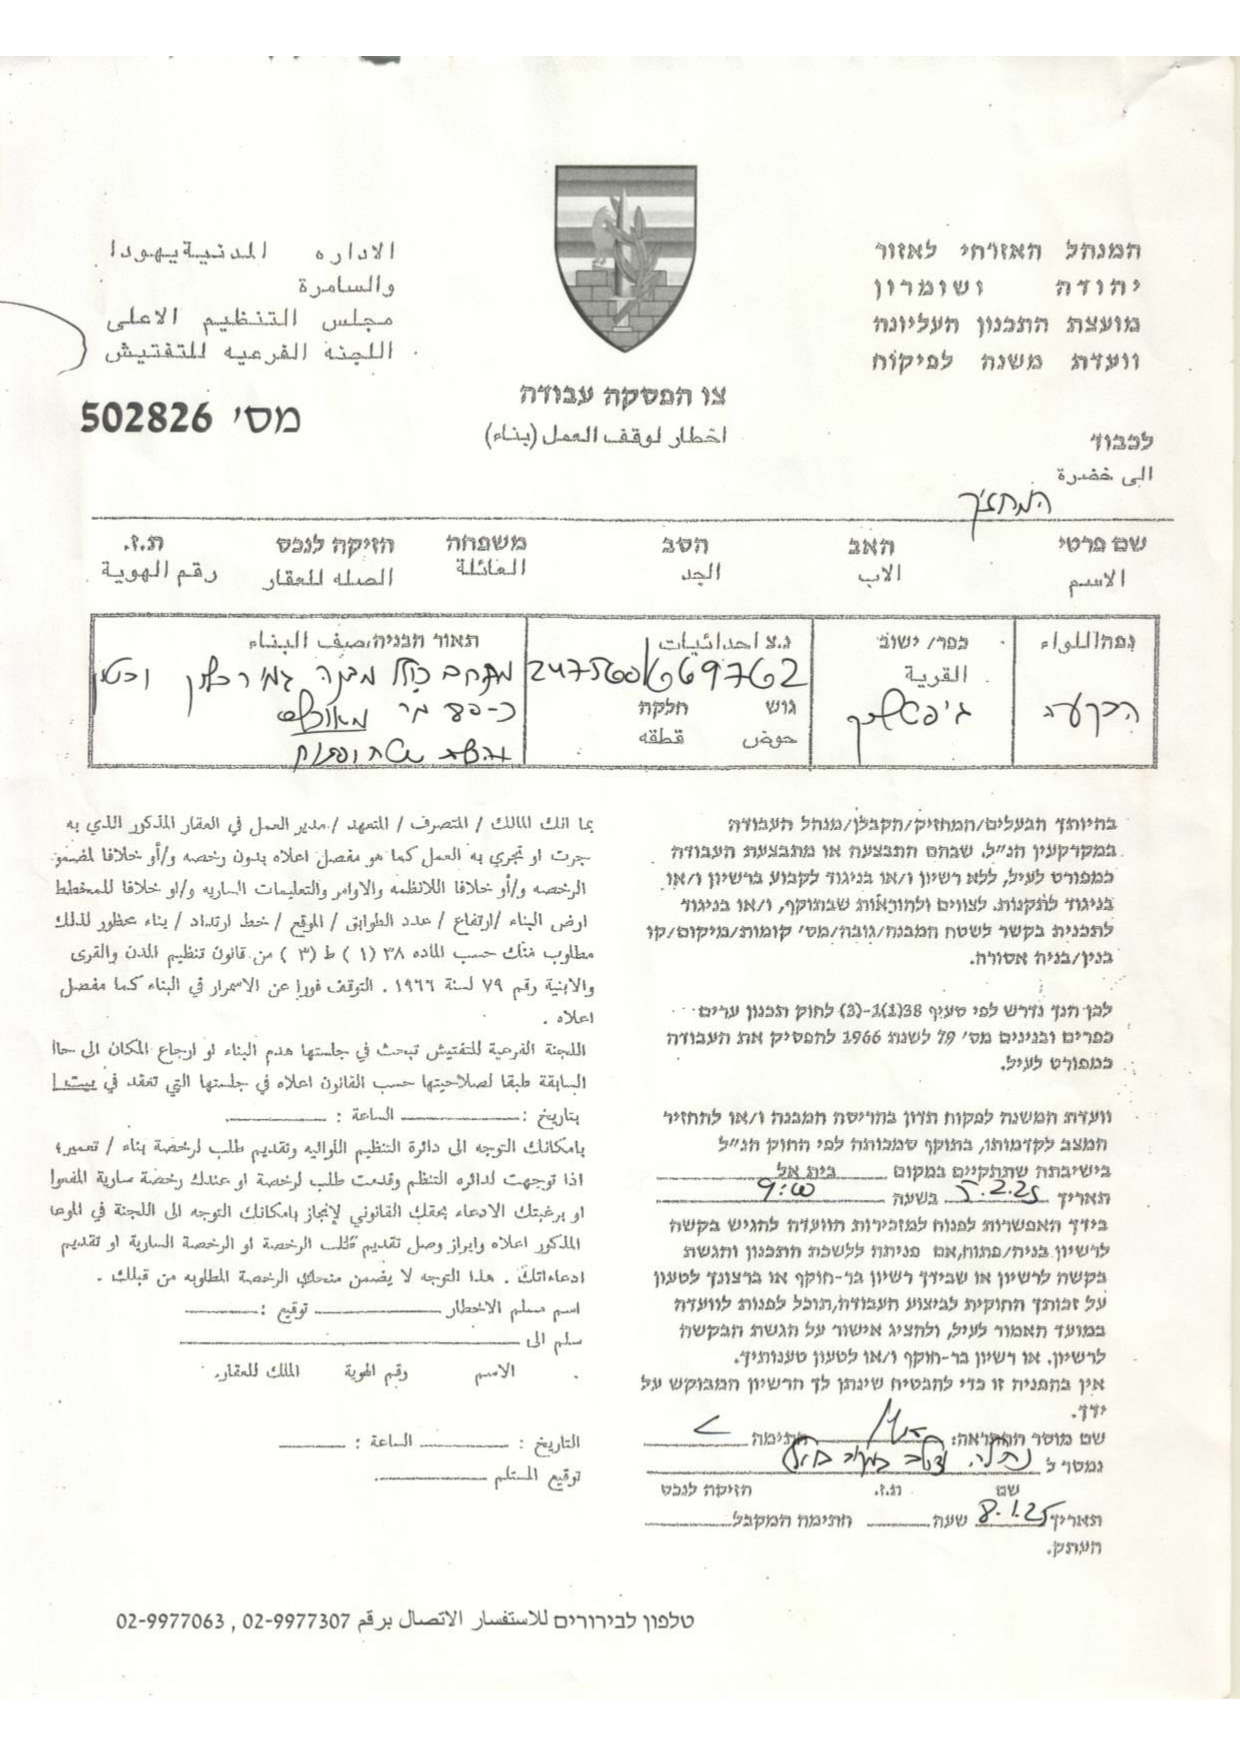 המנהל האזרחי לאזור
יהודה ושומרון
מועצת התכנון העליונה
וועדת משנה לפיקוח
الاداره المدنية يهودا
والسامرة
مجلس التنظيم الاعلى
اللجنه الفرعيه للتفتيش
צו הפסקה עבודה
اخطار لوقف العمل (بناء)
מס׳ 502826
לכבוד
الى حضرة
המחזיק
שם פרטי האב הסב משפחה חזיקה לנכס ת.ז.
الاسم الاب الجد العائلة الصله للعقار رقم الهوية
נפה/اللواء כפר/ ישוב נ.צ احداثيات תאור הבניה/وصف البناء
القرية 247560/669762 מתחם כולל מבנה
הבקעה ג'יפטליק גוש חלקה
حوض قطقه
בהיותך הבעלים/המחזיק/הקבלן/מנהל העבודה
במקרקעין הנ״ל. שבהם התבצעה או מתבצעת העבודה
כמפורט לעיל, ללא רשיון ו/או בניגוד לקבוע ברשיון ו/או
בניגוד לתקנות. לצווים ולהוראות שבתוקף, ו/או בניגוד
לתכנית בקשר לשטח המבנה/גובה/מס׳ קומות/מיקום/קו
בנין/בניה אסורה.
לכן הנך נדרש לפי סעיף 38(1)-(3) לחוק תכנון ערים
כפרים ובנינים מס׳ 79 לשנת 1966 להפסיק את העבודה
כמפורט לעיל.
וועדת המשנה לפקוח תדון בהריסת המבנה ו/או להחזיר
המצב לקדמותו, בתוקף סמכותה לפי החוק הנ״ל
בישיבתה שתתקיים במקום בית אל
תאריך 5.2.25 בשעה 9:00
בידך האפשרות לפנות למזכירות הוועדה להגיש בקשה
לרשיון בניה/פתוח,אם פניתה ללשכת התכנון והגשת
בקשה לרשיון או שבידך רשיון בר-תוקף או ברצונך לטעון
על זכותך החוקית לביצוע העבודה,תוכל לפנות לוועדה
במועד האמור לעיל, ולהציג אישור על הגשת הבקשה
לרשיון. או רשיון בר-תוקף ו/או לטעון טענותיך.
אין בהפניה זו כדי להבטיח שינתן לך הרשיון המבוקש על
ידך.
שם מוסר ההתראה: חתימה
נמסר ל
שם ת.ז. חזיקה לנכס
תאריך 8.1.25 שעה חתימה המקבל
העתק.
بما انك المالك / المتصرف / المتعهد / مدير العمل في العقار المذكور اللذي به
جرت او تجري به العمل كما هو مفصل اعلاه بدون رخصه و/أو خلافا لمضمو
الرخصه و/أو خلافا اللانظمه والاوامر والتعليمات الساريه و/او خلافا للمخطط
ارض البناء /ارتفاع / عدد الطوابق / الموقع / خط ارتداد / بناء محظور لذلك
مطلوب منك حسب الماده ٣٨ (١ ) ط (٣ ) من قانون تنظيم المدن والقرى
والابنية رقم ٧٩ لسنة ١٩٦٦ . التوقف فورا عن الاسمرار في البناء كما مفصل
اعلاه .
اللجنة الفرعية للتفتيش تبحث في جلستها هدم البناء او ارجاع المكان الى حالا
السابقة طبقا لصلاحيتها حسب القانون اعلاه في جلستها التي تعقد في بيت ا
بتاريخ : الساعة :
بامكانك التوجه الى دائرة التنظيم اللوائيه وتقديم طلب لرخصة بناء / تعمير؛
اذا توجهت لدائره التنظم وقدمت طلب لرخصة او عندك رخصة سارية المفعوا
او برغبتك الادعاء بحقك القانوني لإنجاز بامكانك التوجه الى اللجنة في الموعا
المذكور اعلاه وابراز وصل تقديم طلب الرخصة او الرخصة السارية او تقديم
ادعاءاتك . هذا التوجه لا يضمن منحك الرخصة المطلوبه من قبلك .
اسم مسلم الاخطار توقيع :
سلم الى
الاسم رقم الهوية الملك للعقار.
التاريخ : الساعة :
توقيع المستلم
טלפון לבירורים للاستفسار الاتصال برقم 02-9977307 , 02-9977063